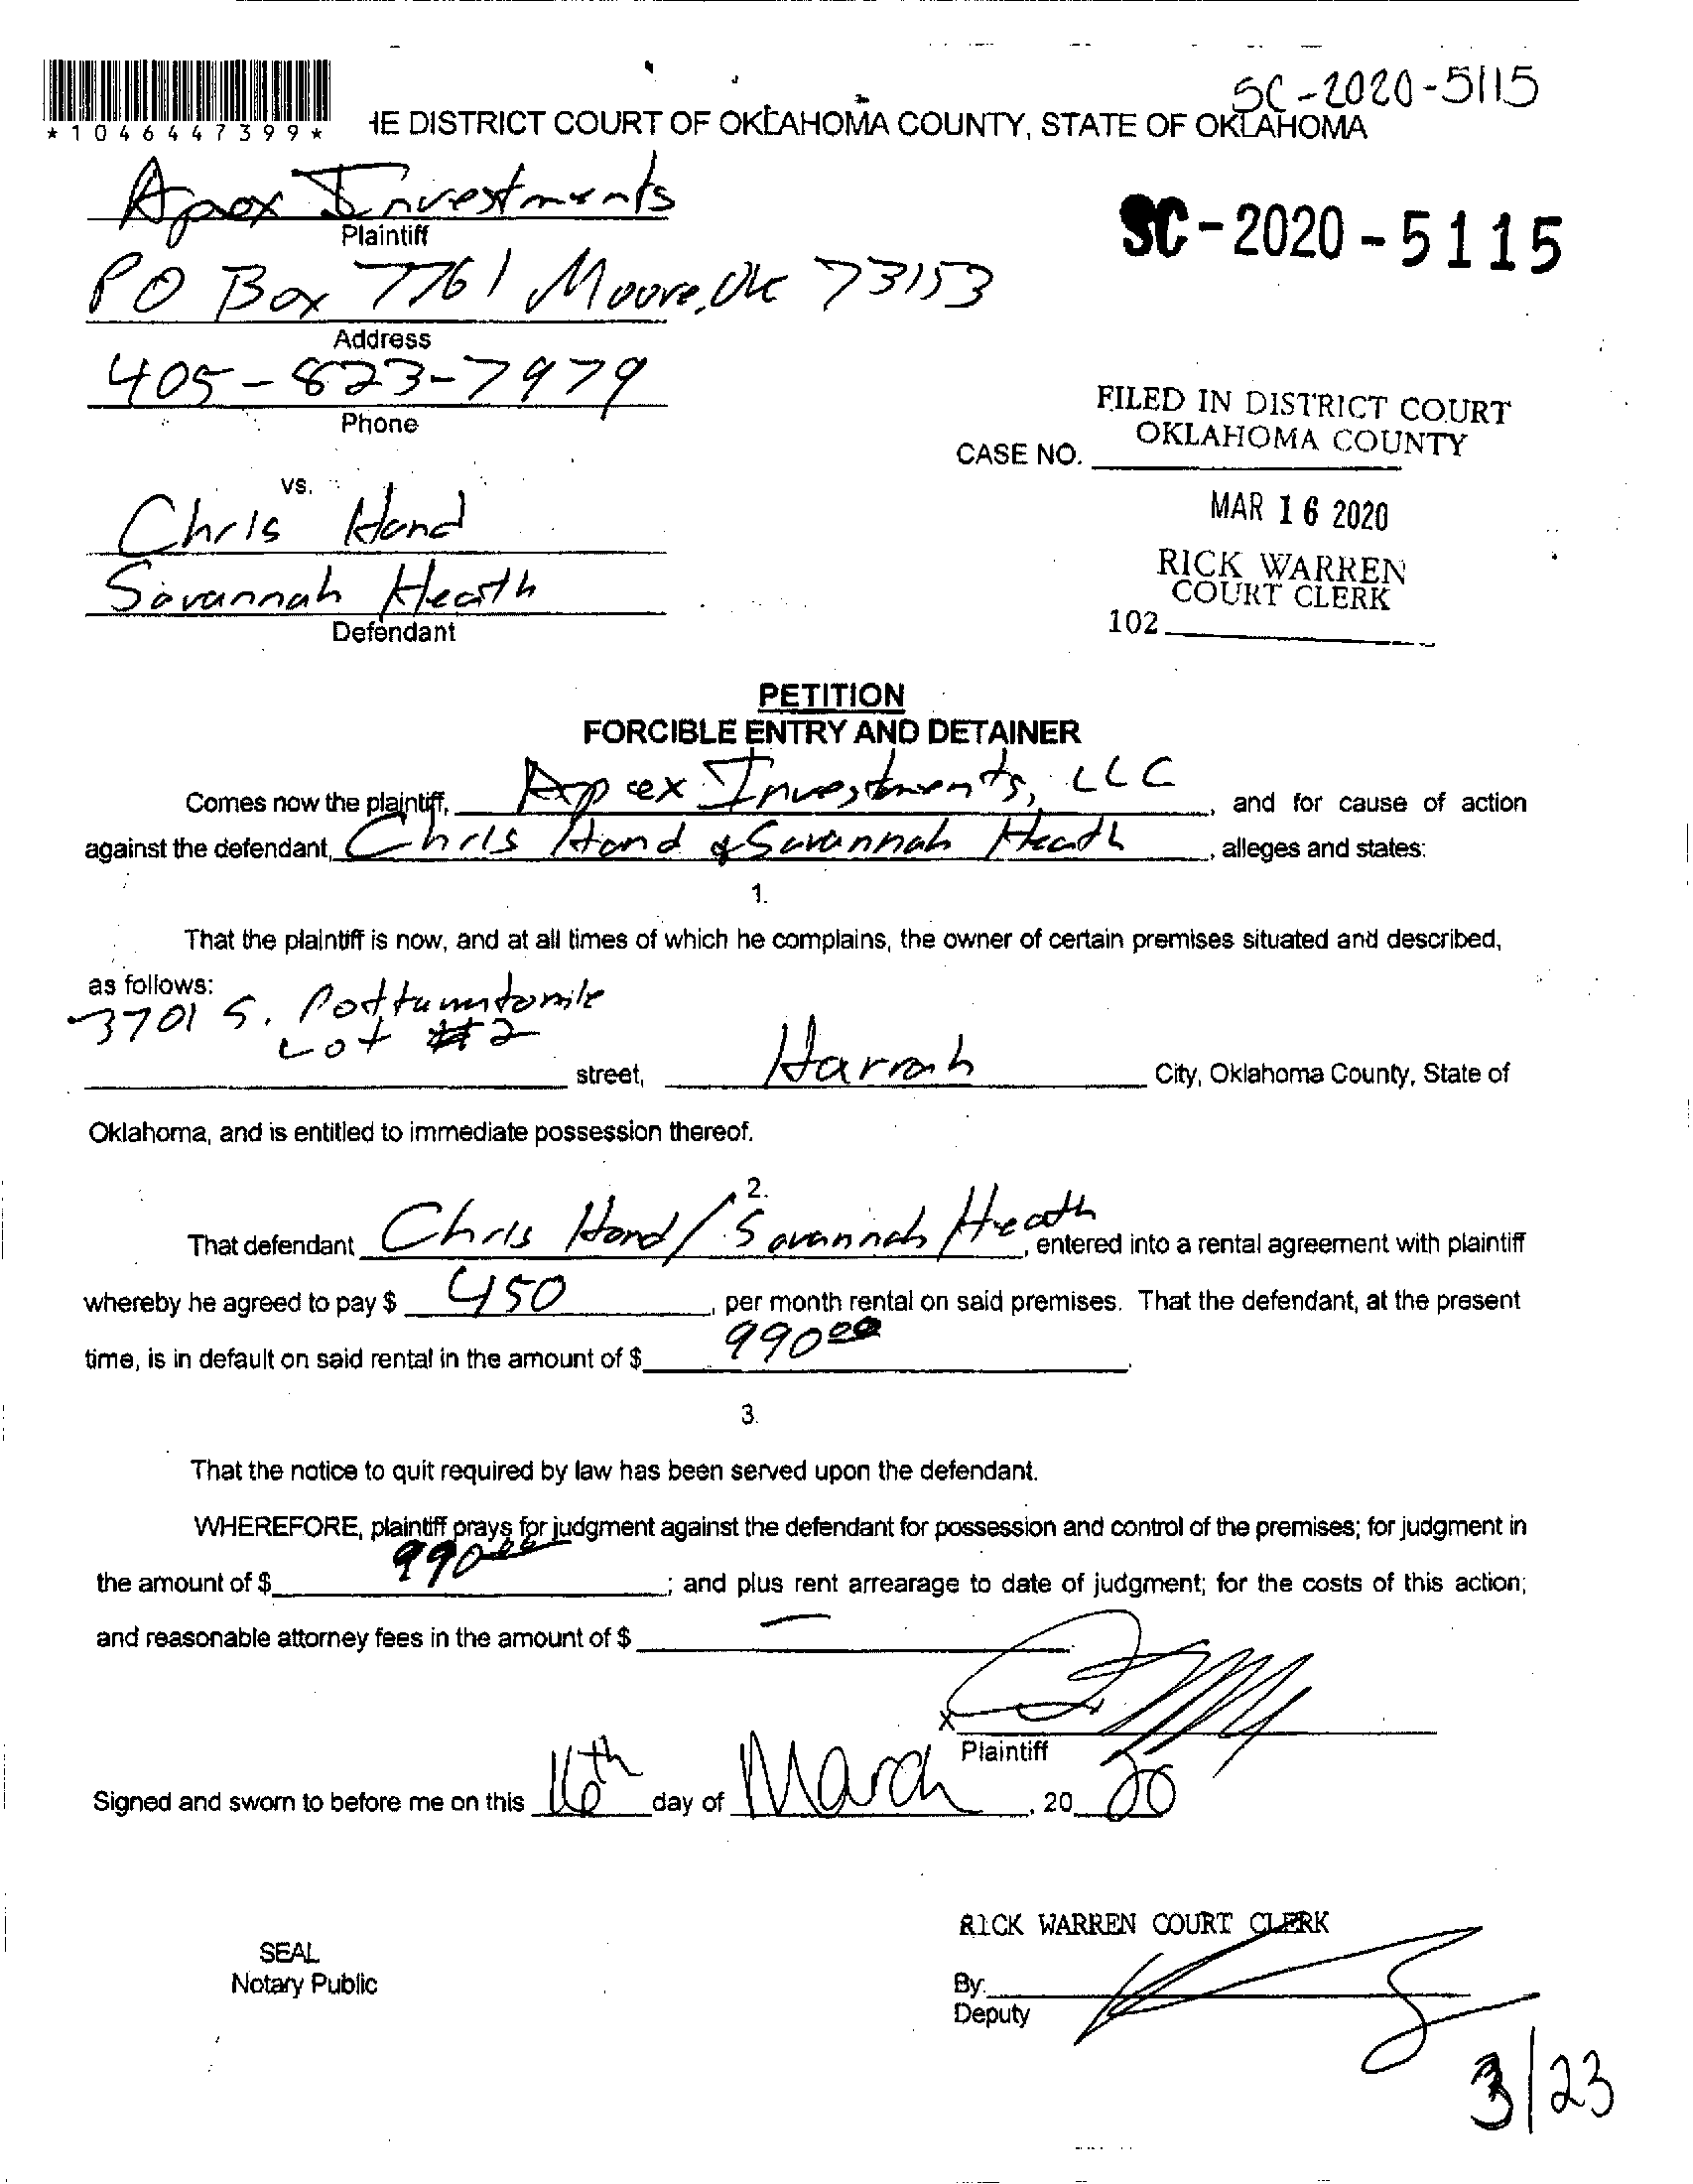 SC-2020-5115
*1046447399*
HE DISTRICT COURT OF OKLAHOMA COUNTY, STATE OF OKLAHOMA
Apex Investments
Plaintiff
SC-2020-5115
PO Box 7761 Moore, OK 73153
Address
405-823-7979
Phone
FILED IN DISTRICT COURT
OKLAHOMA COUNTY
CASE NO.
MAR 16 2020
RICK WARREN
COURT CLERK
102
vs.
Chris Hand
Savannah Heath
Defendant
PETITION
FORCIBLE ENTRY AND DETAINER
Comes now the plaintiff, Apex Investments, LLC, and for cause of action
against the defendant, Chris Hand & Savannah Heath, alleges and states:
1.
That the plaintiff is now, and at all times of which he complains, the owner of certain premises situated and described,
as follows:
3701 S.
Lot #2
street, Harrah City, Oklahoma County, State of
Oklahoma, and is entitled to immediate possession thereof.
2.
That defendant Chris Hand/Savannah Heath, entered into a rental agreement with plaintiff
whereby he agreed to pay $ 450, per month rental on said premises. That the defendant, at the present
time, is in default on said rental in the amount of $ 990.00.
3.
That the notice to quit required by law has been served upon the defendant.
WHEREFORE, plaintiff prays for judgment against the defendant for possession and control of the premises; for judgment in
the amount of $ 990.00; and plus rent arrearage to date of judgment; for the costs of this action;
and reasonable attorney fees in the amount of $ —
x
Plaintiff
Signed and sworn to before me on this 16th day of March, 20 20
RICK WARREN COURT CLERK
SEAL
Notary Public
By:
Deputy
3/23